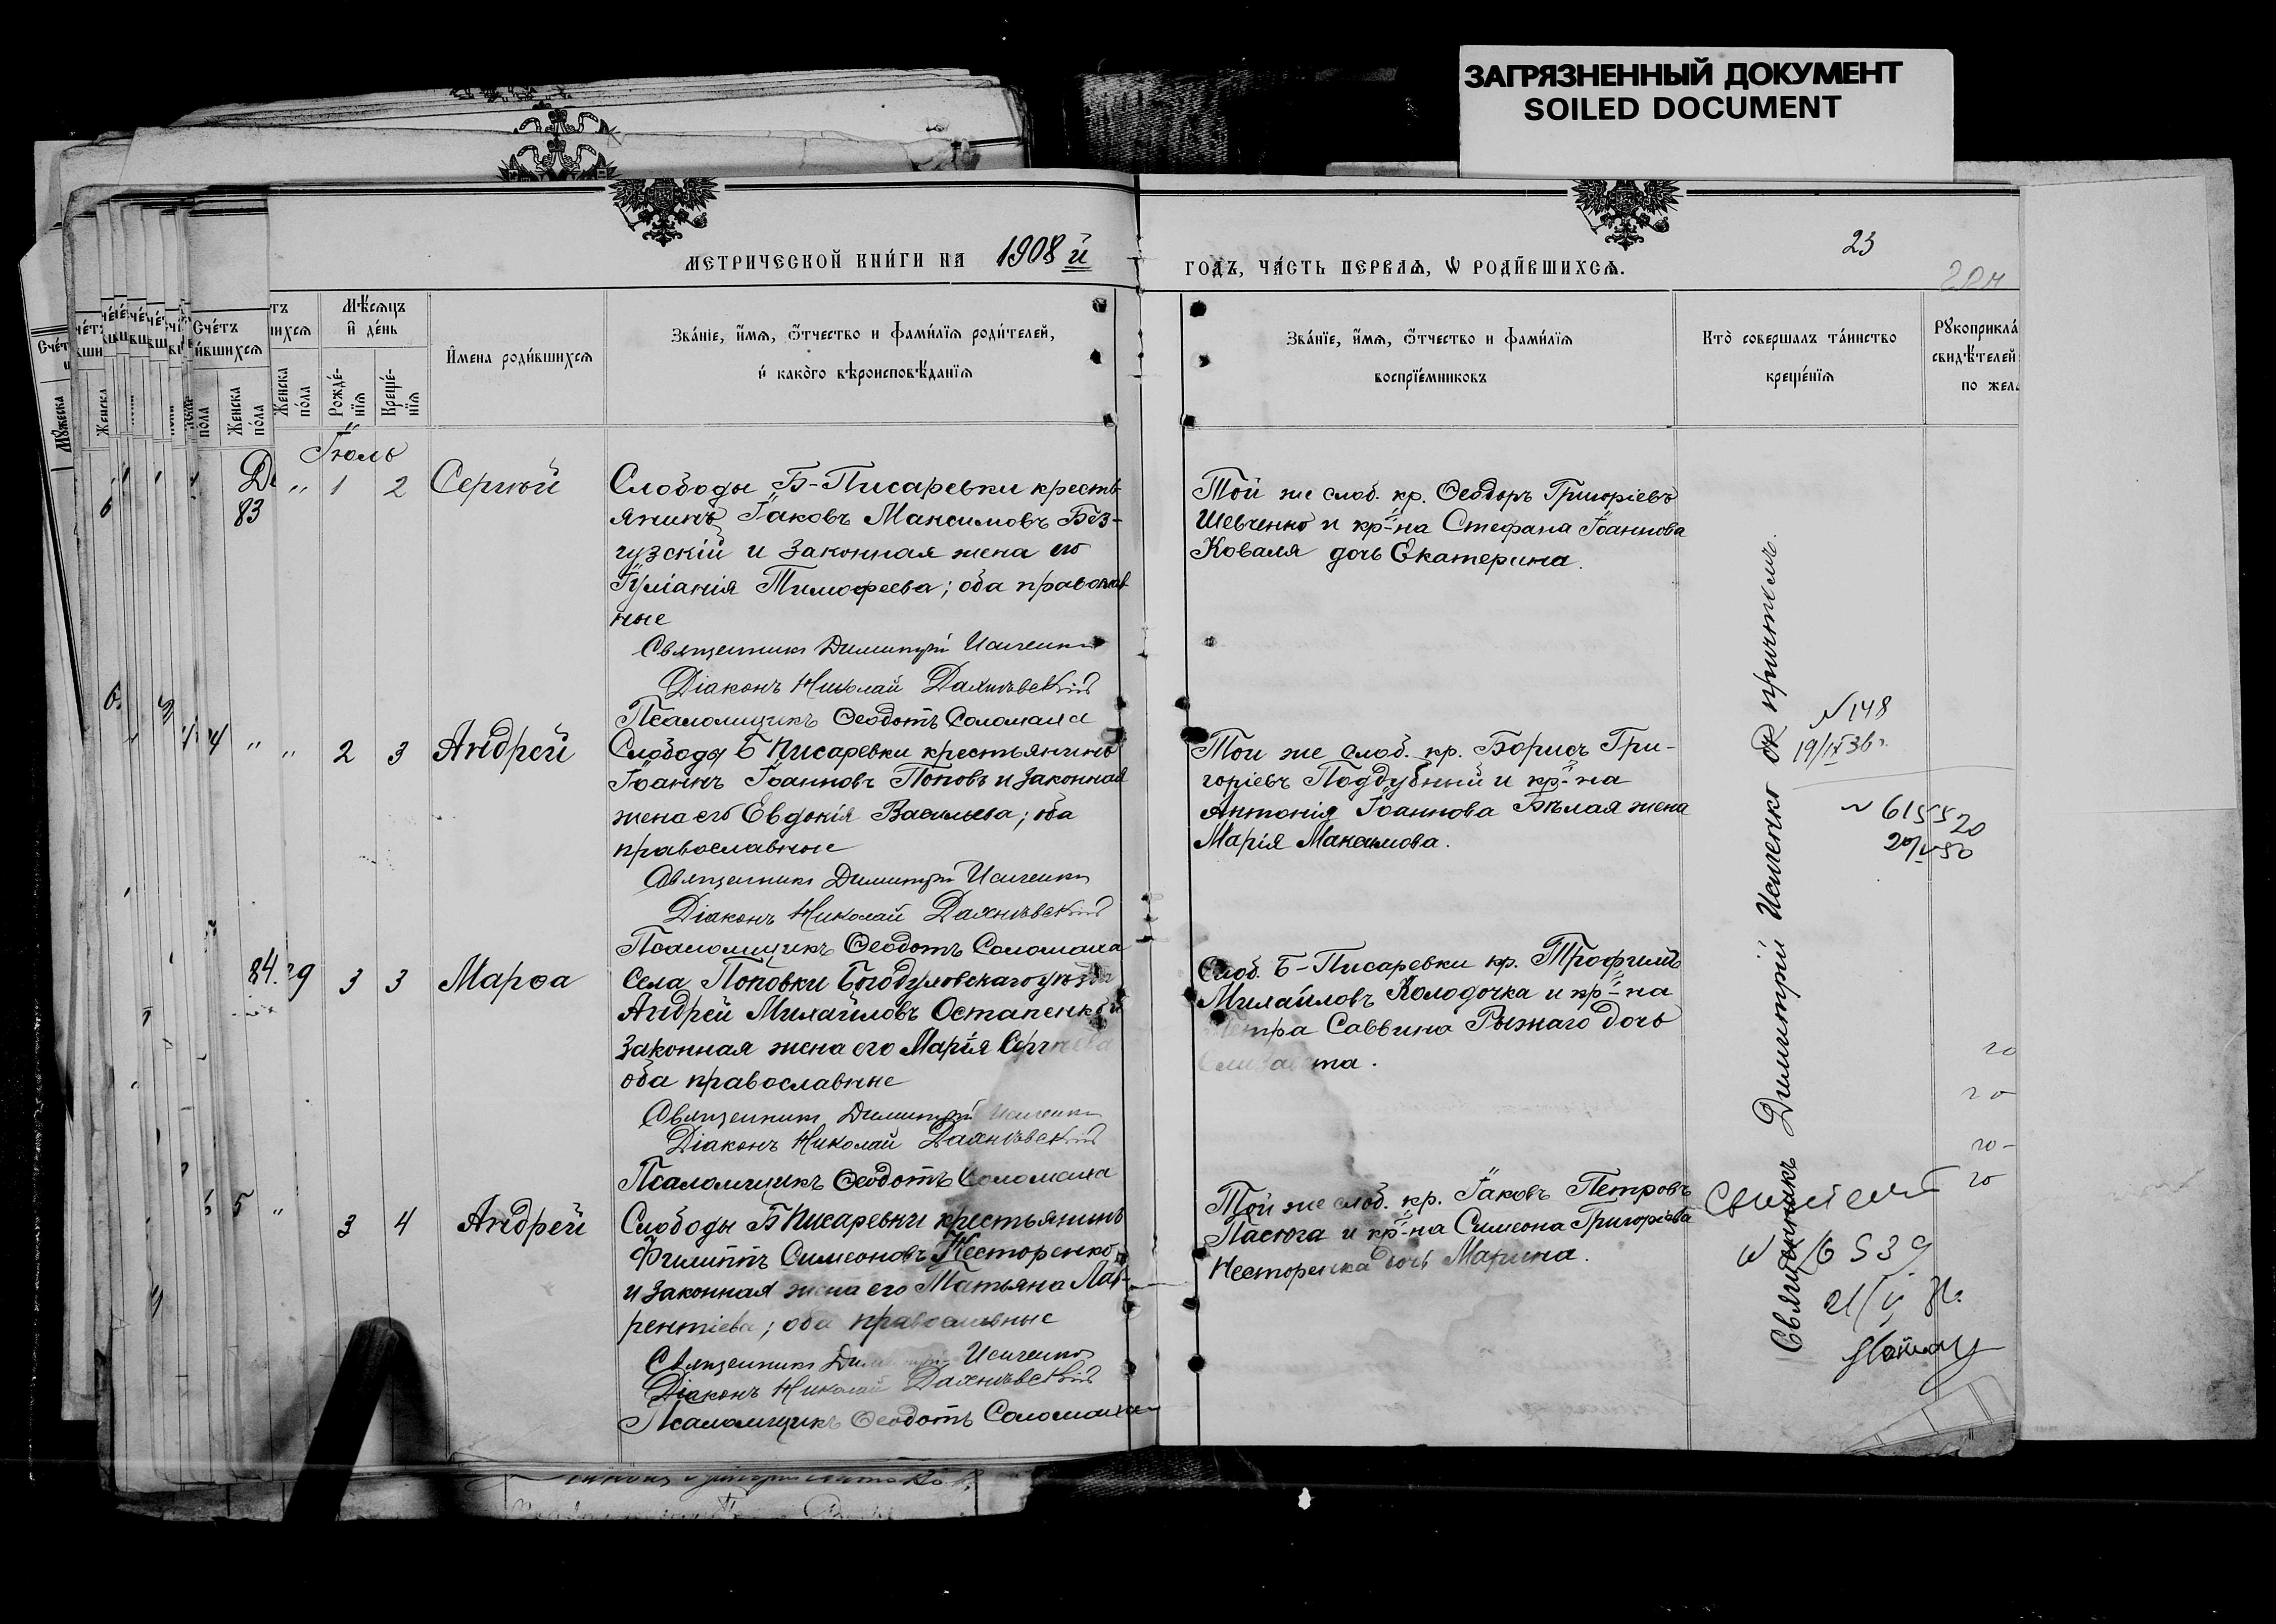 ЗАГРЯЗНЕННЫЙ ДОКУМЕНТ
SOILED DOCUMENT
МЕТРИЧЕСКОЙ КНИГИ НА 1908 й
ГОДЪ, ЧАСТЬ ПЕРВАѦ, Ѡ РОДИВШИХСѦ.
23
Мѣсяцъ и день
Счетъ
Женска пола
Рождéнїя
Крещéнїя
Имена родившихся
Званїе, имя, ѿчество и фамилїя родителей,
и какого вѣроисповѣданїя
Званїе, имя, ѿчество и фамилїя
воспрїемниковъ
Кто совершалъ таинство
крещенїя
Рукоприкла
свидѣтелей
по жела
Іюль
83 " 1 2 Сергѣй
Слободы Б-Писаревки кресть
янинъ Іаковъ Максимовъ Без-
гузскій и законная жена его
Іуліанія Тимофеева; оба православ
ные
Священникъ Димитрій Исиченко
Діаконъ Николай
Псаломщикъ Ѳеодотъ Соломаха
Той же слоб. кр. Ѳеодоръ Григоріевъ
Шевченко и кр-на Стефана Іоаннова
Коваля дочь Екатерина.
" 2 3 Андрей
Слободы Б Писаревки крестьянинъ
Іоаннъ Іоанновъ Поповъ и законная
жена его Евдокія Васильева; оба
православные
Священникъ Димитрій Исиченко
Діаконъ Николай
Псаломщикъ Ѳеодотъ Соломаха
Той же слоб. кр. Борисъ Гри-
горіевъ Поддубный и кр-на
Антонія Іоаннова Бѣлая жена
Марія Максимова.
№ 148
19/IX 36 г.
№ 61552
84. 3 3 Марѳа
Села Поповки Богодуховскаго уѣзда
Андрей Михайловъ Остапенко и
законная жена его Марія Сергѣева
оба православные
Священникъ Димитрій Исиченко
Діаконъ Николай
Псаломщикъ Ѳеодотъ Соломаха
Слоб. Б-Писаревки кр. Трофимъ
Михайловъ Колодочка и кр-на
Петра Саввина Рыжаго дочь
Елизавета.
5 " 3 4 Андрей
Слободы Б Писаревки крестьянинъ
Филиппъ Симеоновъ Несторенко
и законная жена его Татьяна Лав-
рентіева; оба православные
Священникъ Димитрій Исиченко
Діаконъ Николай
Псаломщикъ Ѳеодотъ Соломаха
Той же слоб. кр. Іаковъ Петровъ
Пасюга и кр-на Симеона Григоріева
Несторенка дочь Марина.
Священникъ Димитрій Исиченко съ причтомъ.